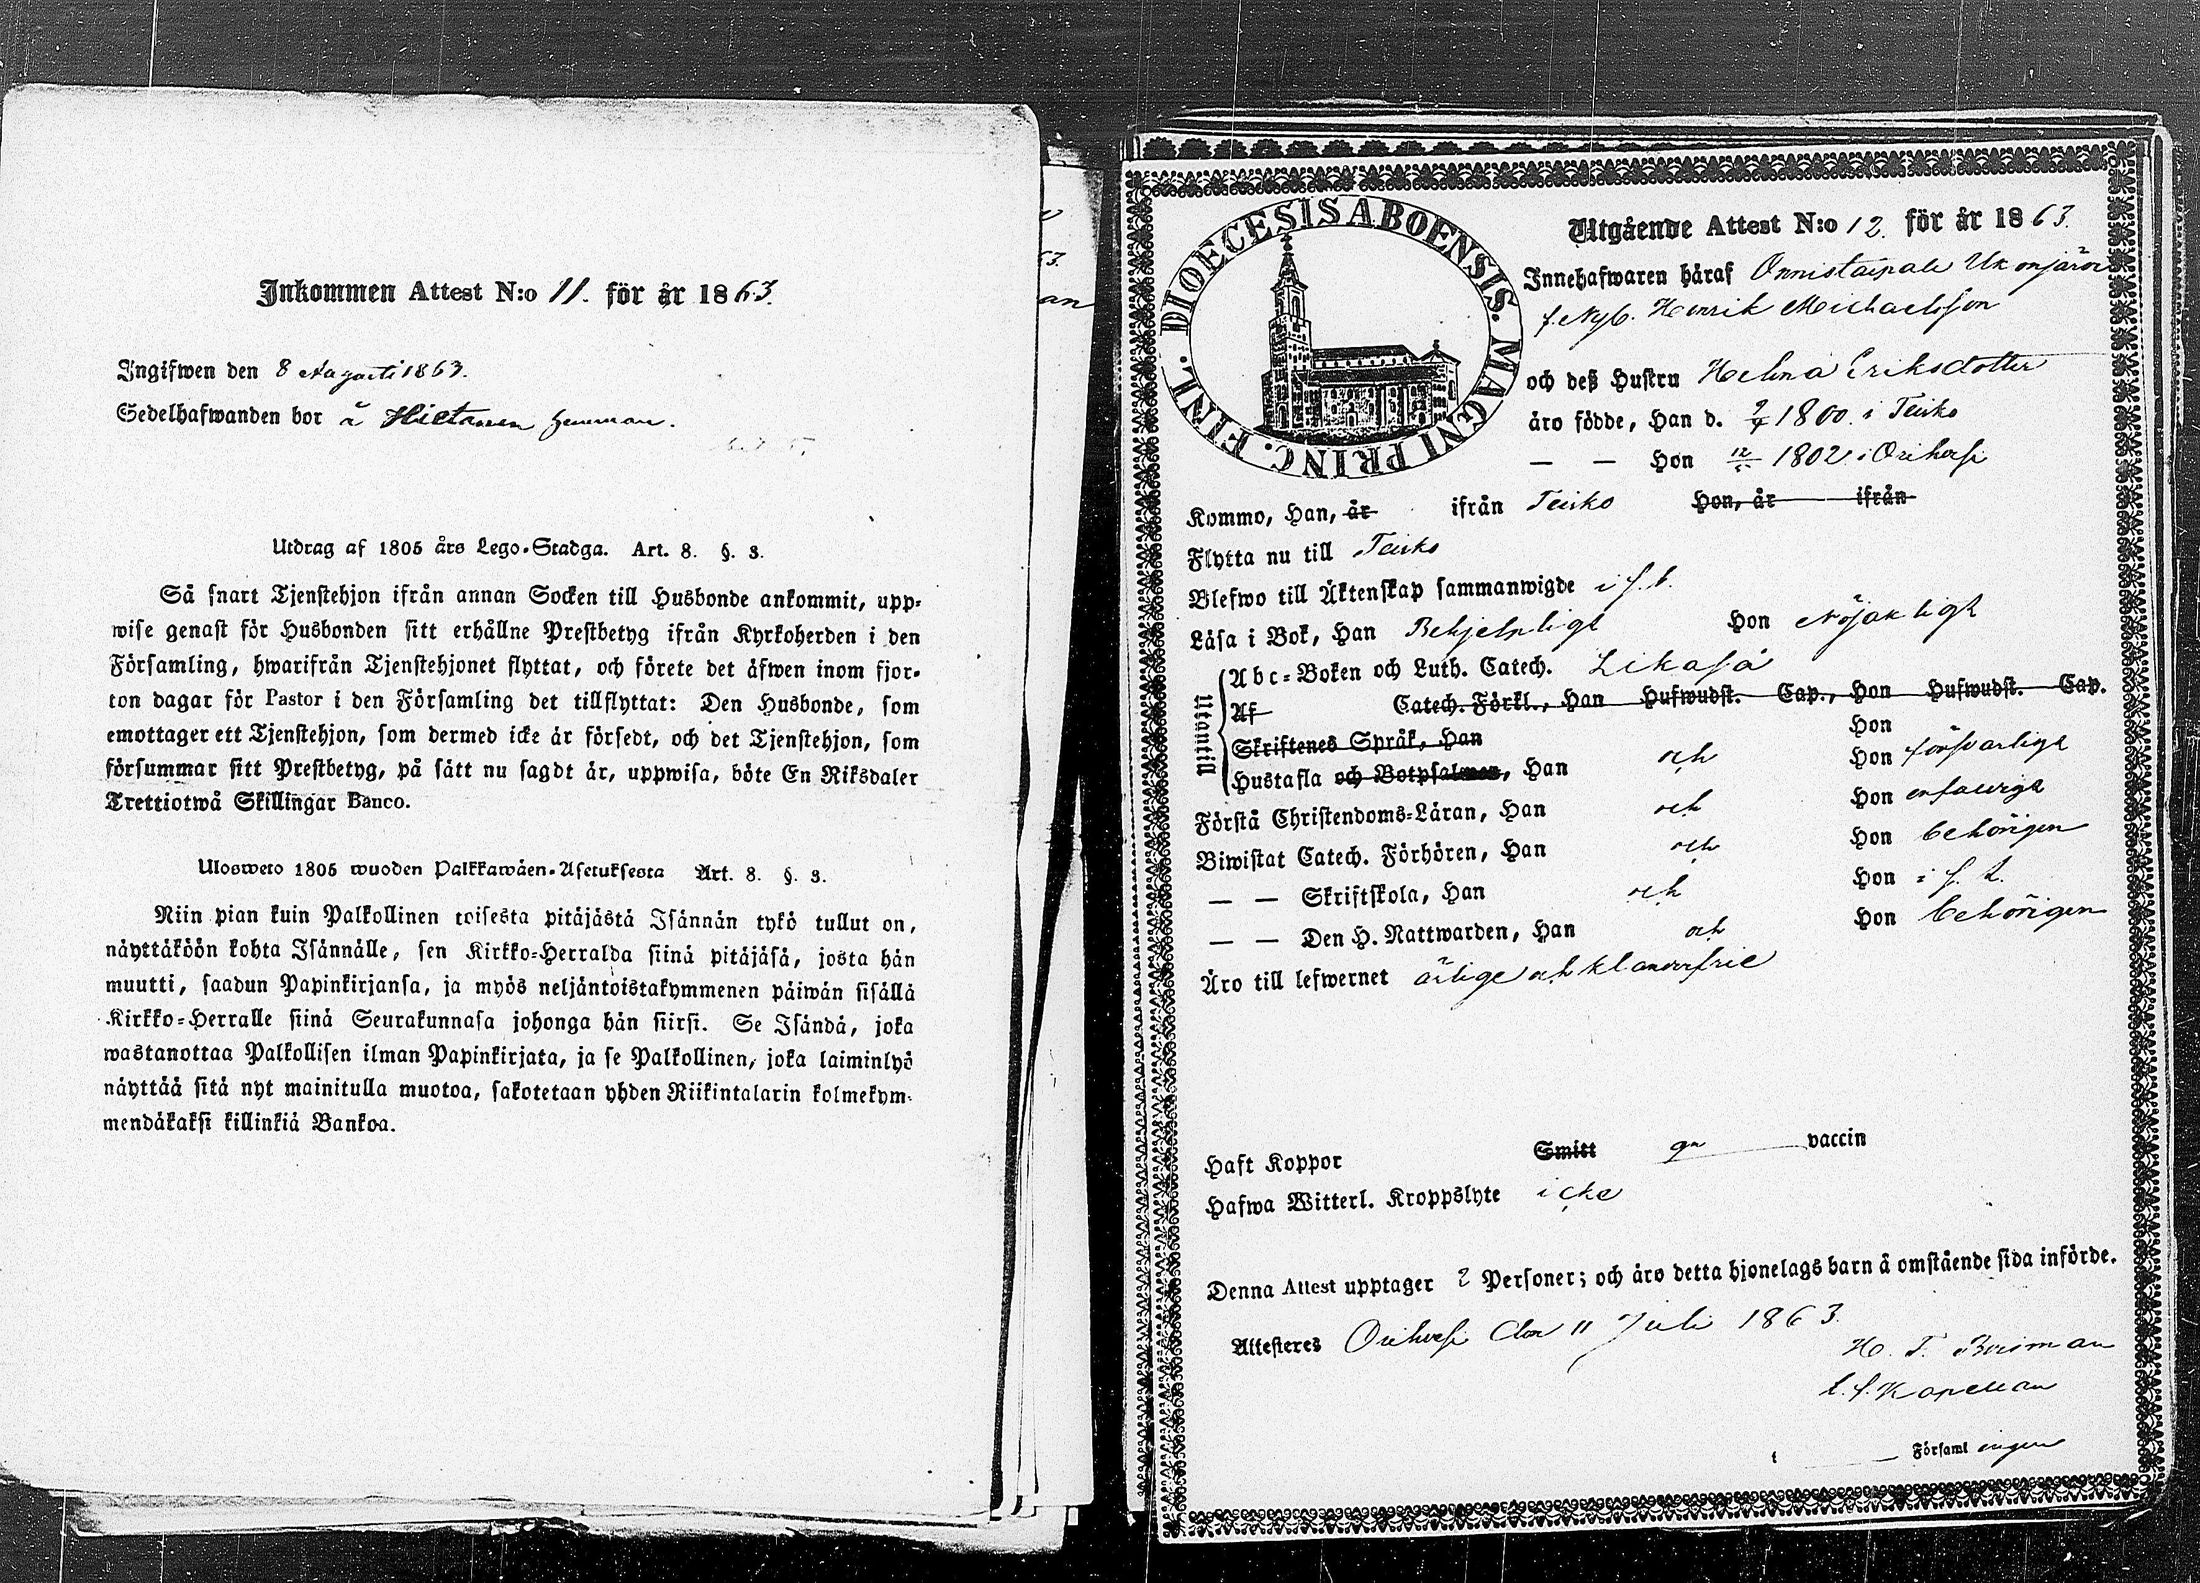 Inkommen Attest N:o 11. för år 1863.
Ingifwen den 8 Augusti 1863.
Sedelhafwanden bor å Hietanen hemman.
Utdrag af 1805 års Lego-Stadga. Art. 8. §. 3.
Så snart Tjenstehjon ifrån annan Socken till Husbonde ankommit, upp-
wise genast för Husbonden sitt erhållne Prestbetyg ifrån Kyrkoherden i den
Församling, hwarifrån Tjenstehjonet flyttat, och förete det äfwen inom fjor-
ton dagar för Pastor i den Församling det tillflyttat: Den Husbonde, som
emottager ett Tjenstehjon, som dermed icke är försedt, och det Tjenstehjon, som
försummar sitt Prestbetyg, på sätt nu sagdt är, uppwisa, böte En Riksdaler
Trettiotwå Skillingar Banco.
Ulosweto 1805 wuoden Palkkawäen-Asetuksesta Art. 8. §. 3.
Niin pian kuin Palkollinen toisesta pitäjästä Isännän tykö tullut on,
näyttäköön kohta Isännälle, sen Kirkko-Herralda siinä pitäjäsä, josta hän
muutti, saadun Papinkirjansa, ja myös neljäntoistakymmenen päiwän sisällä
Kirkko-Herralle siinä Seurakunnasa johonga hän siirsi. Se Isändä, joka
wastanottaa Palkollisen ilman Papinkirjata, ja se Palkollinen, joka laiminlyö
näyttää sitä nyt mainitulla muotoa, sakotetaan yhden Riikintalarin kolmekym-
mendäkaksi killinkiä Bankoa.
DIOECESIS ABOENSIS. MAGNI PRINC. FINL.
Utgående Attest N:o 12. för år 1863.
Innehafwaren häraf Onnistaipale Ukonjärvi
f. Nyb. Henrik Michaelsson
och deß Hustru Helena Eriksdotter
äro födde, Han d. 1800. i Teisko
— — Hon 1802 i Orihvesi
Kommo, Han, år ifrån Teisko Hon, år ifrån
Flytta nu till Teisko
Blefwo till Äktenskap sammanwigde i f. t.
Läsa i Bok, Han Behjelpligt Hon Nöjaktigt
Utantill
Abc-Boken och Luth. Catech. Likaså
Af Catech. Förkl., Han Hufwudst. Cap., Hon Hufwudst. Cap.
Skriftenes Språk, Han Hon
Hustafla och Botpsalmen, Han och Hon försvarligt
Förstå Christendoms-Läran, Han och Hon enfaldigt
Biwistat Catech. Förhören, Han och Hon behörigen
— — Skriftskola, Han och Hon i f. t.
— — Den H. Nattwarden, Han och Hon behörigen
Äro till lefwernet ärlige och klanderfrie
Haft Koppor Smitt vaccin
Hafwa Witterl. Kroppslyte icke
Denna Attest upptager 2 Personer; och äro detta hjonelags barn å omstående sida införde.
Attesteres Orihvesi den 11 Juli 1863.
H. T.
Kapellan
Församlingen